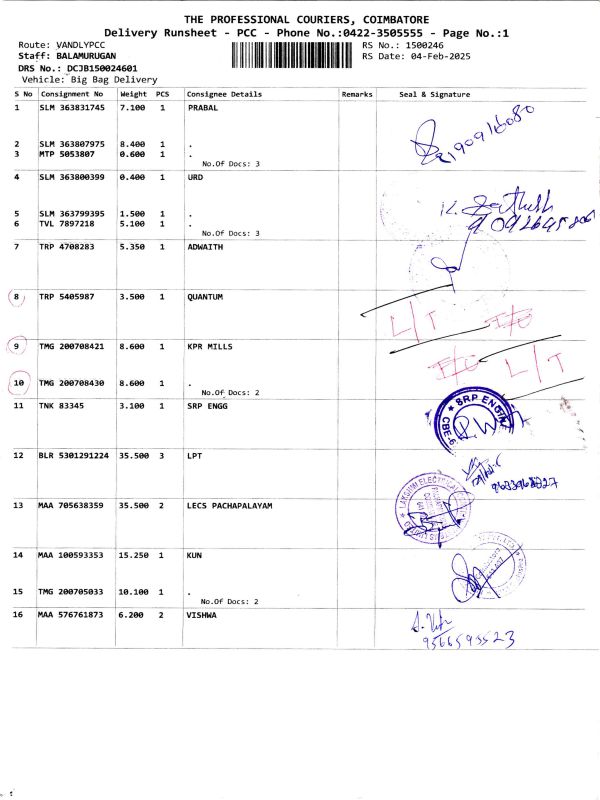 THE PROFESSIONAL COURIERS, COIMBATORE
Delivery Runsheet - PCC - Phone No.:0422-3505555 - Page No.:1
Route: VANDLYPCC RS No.: 1500246
Staff: BALAMURUGAN RS Date: 04-Feb-2025
DRS No.: DCJB150024601
Vehicle: Big Bag Delivery
S No Consignment No Weight PCS Consignee Details Remarks Seal & Signature
1 SLM 363831745 7.100 1 PRABAL
2 SLM 363807975 8.400 1 .
3 MTP 5053807 0.600 1 .
No.Of Docs: 3
4 SLM 363800399 0.400 1 URD
5 SLM 363799395 1.500 1 .
6 TVL 7897218 5.100 1 .
No.Of Docs: 3
7 TRP 4708283 5.350 1 ADWAITH
8 TRP 5405987 3.500 1 QUANTUM
L/T I/C
9 TMG 200708421 8.600 1 KPR MILLS
I/C L/T
10 TMG 200708430 8.600 1 .
No.Of Docs: 2
11 TNK 83345 3.100 1 SRP ENGG
SRP ENGINE
CBE-9
12 BLR 5301291224 35.500 3 LPT
13 MAA 705638359 35.500 2 LECS PACHAPALAYAM
14 MAA 100593353 15.250 1 KUN
15 TMG 200705033 10.100 1 .
No.Of Docs: 2
16 MAA 576761873 6.200 2 VISHWA
9566593523